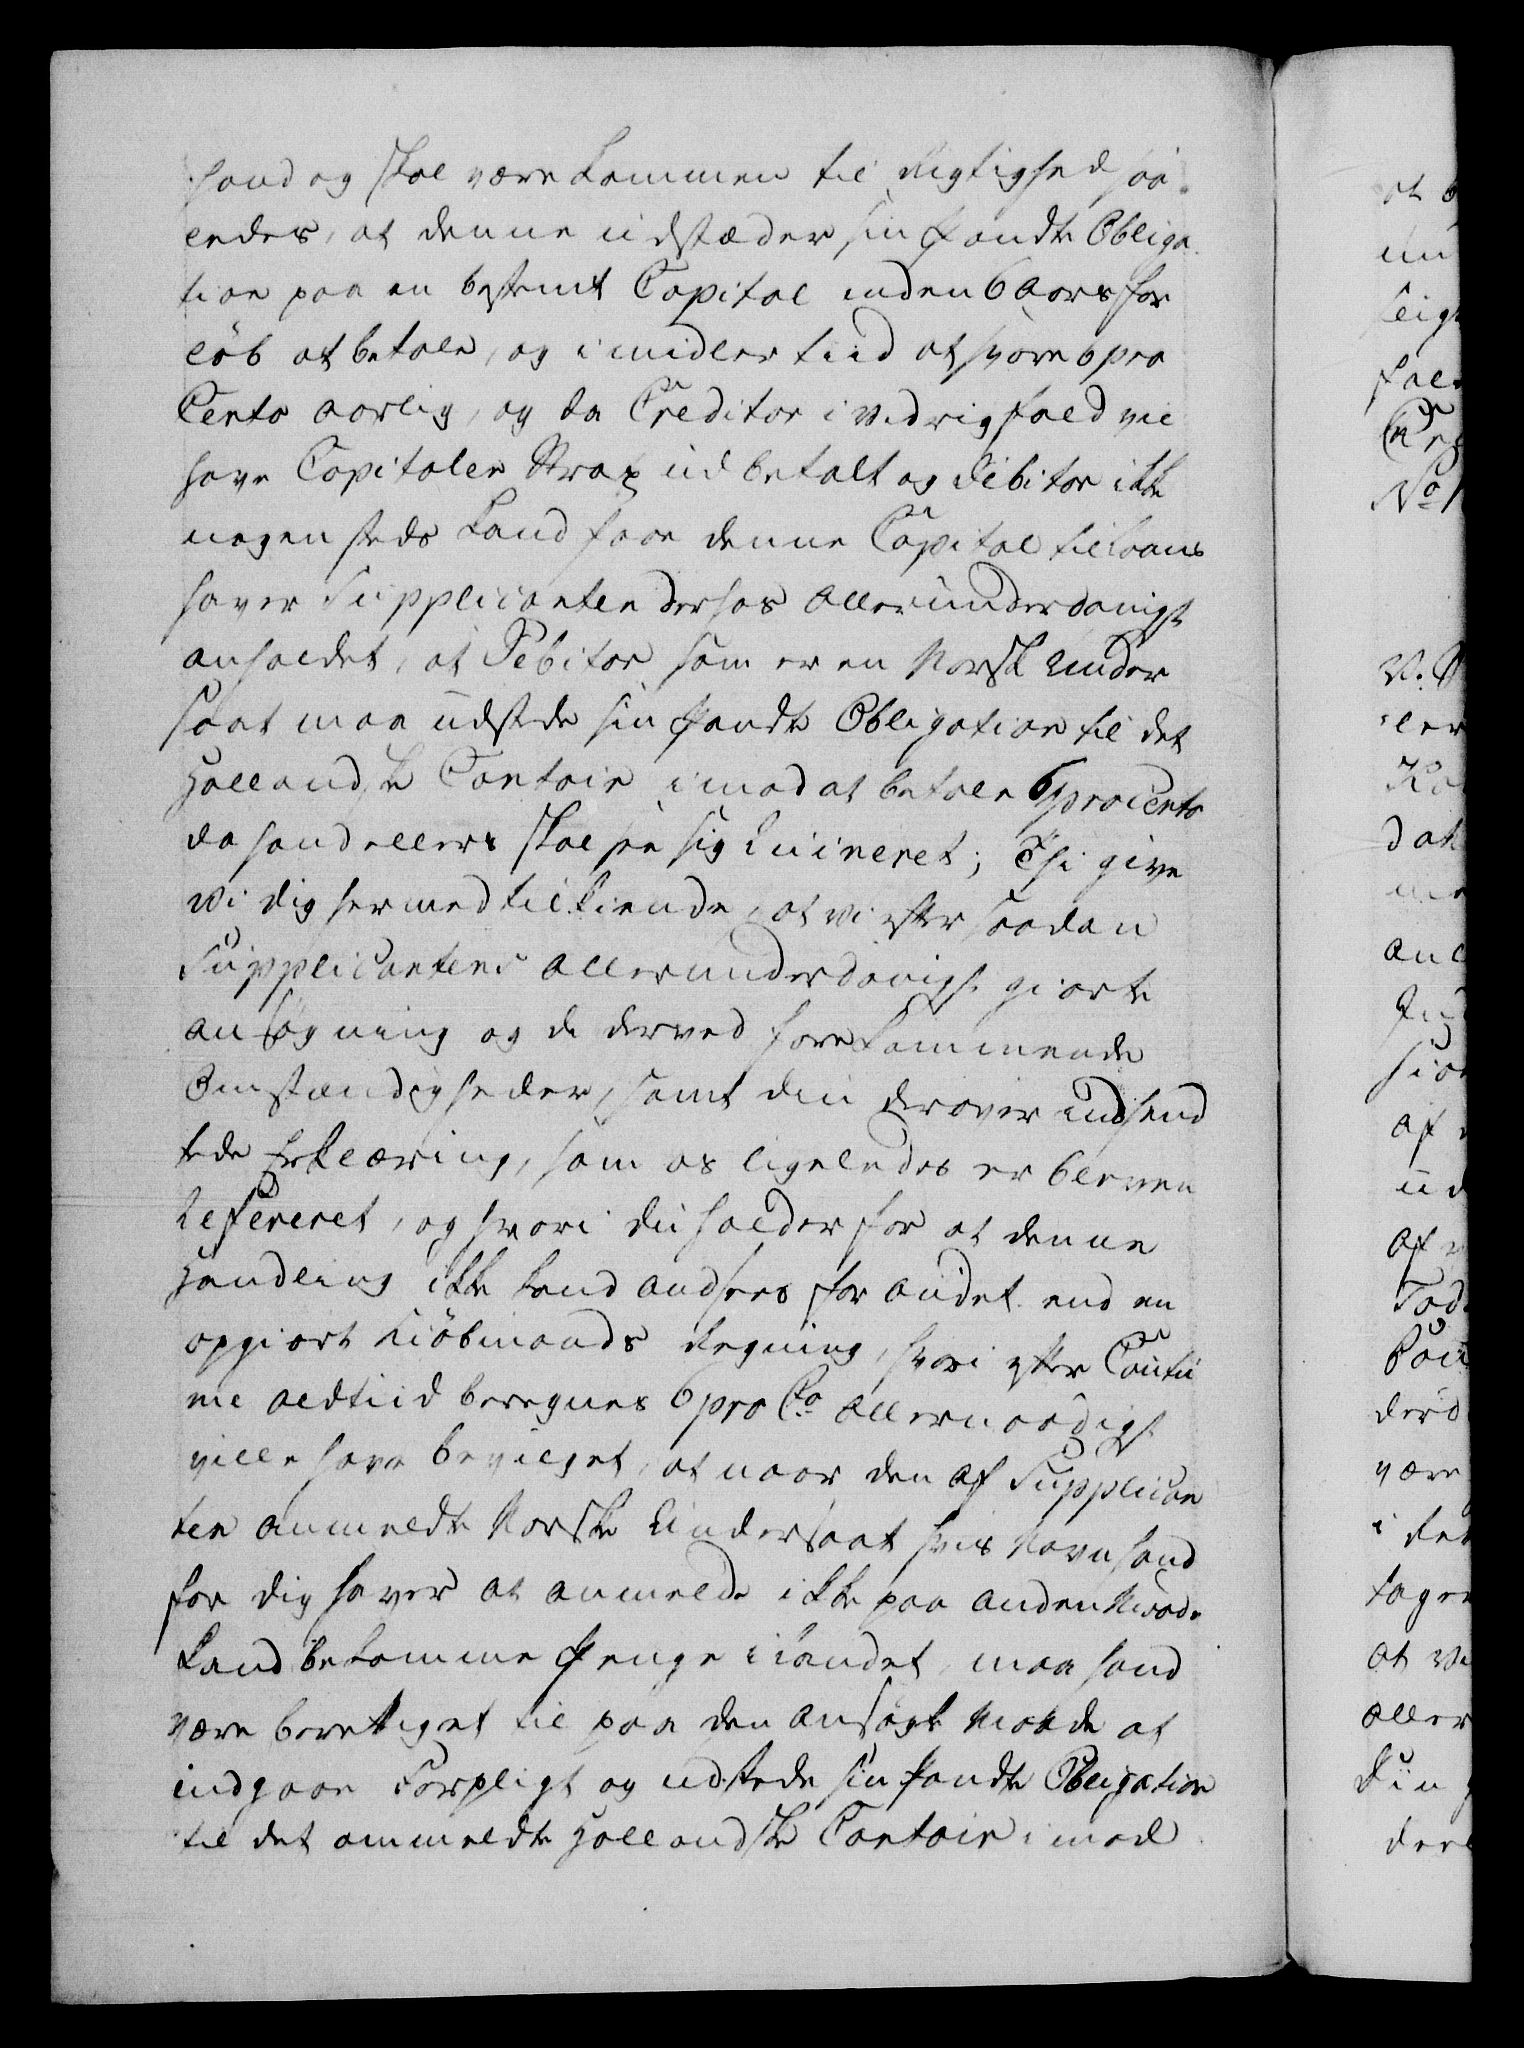 hand og skal være kommen til Rigtighed saa
ledes, at denne udstæder sin Pandte Obliga
tion paa en bestemt Capital inden 6 Aars for
løb at betale, og imidlertiid at svare 6 pro
Cento aarlig, og da Creditor i Vedrigfald vil
have Capitalen Strax udbetalt og Debitor ikke
nogensteds kand faae denne Capital til Laans
haver Supplicanten derhos allerunderdanigst
anholdet, at Debitor som er en Norsk Under
saat maa udstede sin Pandte Obligation til det
Hollandske Contoir imod at betale 6 pro Cento
da hand ellers skal see sig Ruineret; Thi give
Vi dig hermed tilkiende, at vi efter saadan
Supplicantens allerunderdanigst giorte
ansøgning og de derved forekommende
Omstændigheder, samt din derover indsend
tede Erklæring, som os ligeledes er bleven
Refereret, og hvori du holder for at denne
Handling ikke kand ansees for andet end en
opgiort Kiøbmands Regning, hvori efter Coutu
me altiid beregnes 6 pro Cto allernaadigst
ville have bevilget, at naar den af Supplican
ten anmeldte Norske Undersaat hvis Navn hand
for dig haver at anmelde ikke paa anden Maade
kand bekomme Penge i Landet, maa hand
være berettiget til paa den ansøgte Maade at
indgaae Forpligt og udstede sin Pandte Obligation
til det ommeldte Hollandske Contoir imod